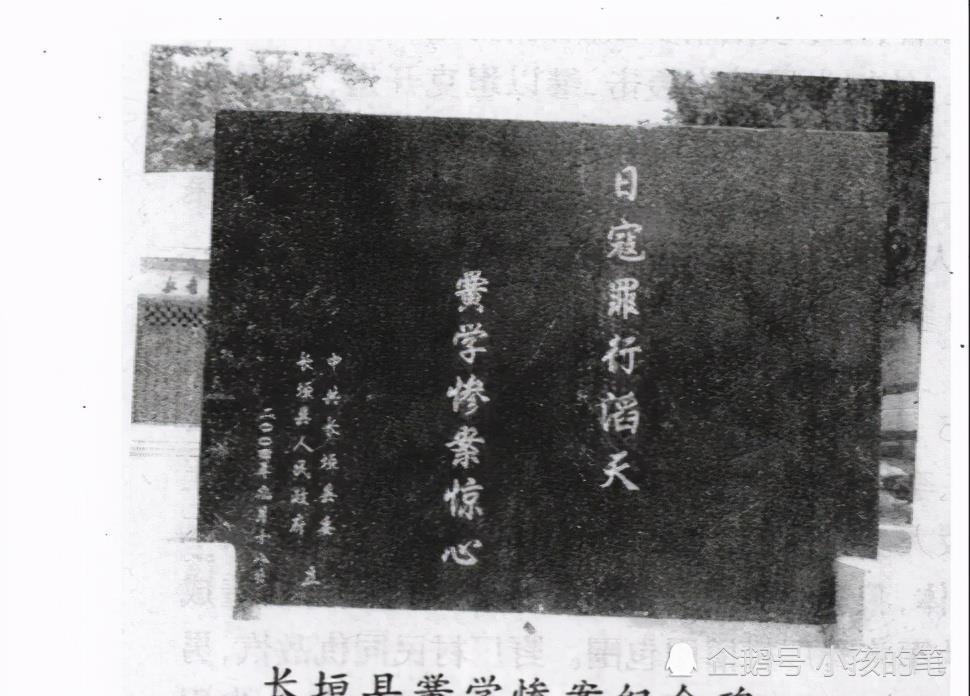 日寇罪行滔天
黉学惨案惊心
中共长垣县委
长垣县人民政府 立
二〇〇四年九月十八日
长垣县黉学惨案纪念碑
企鹅号 小孩的笔